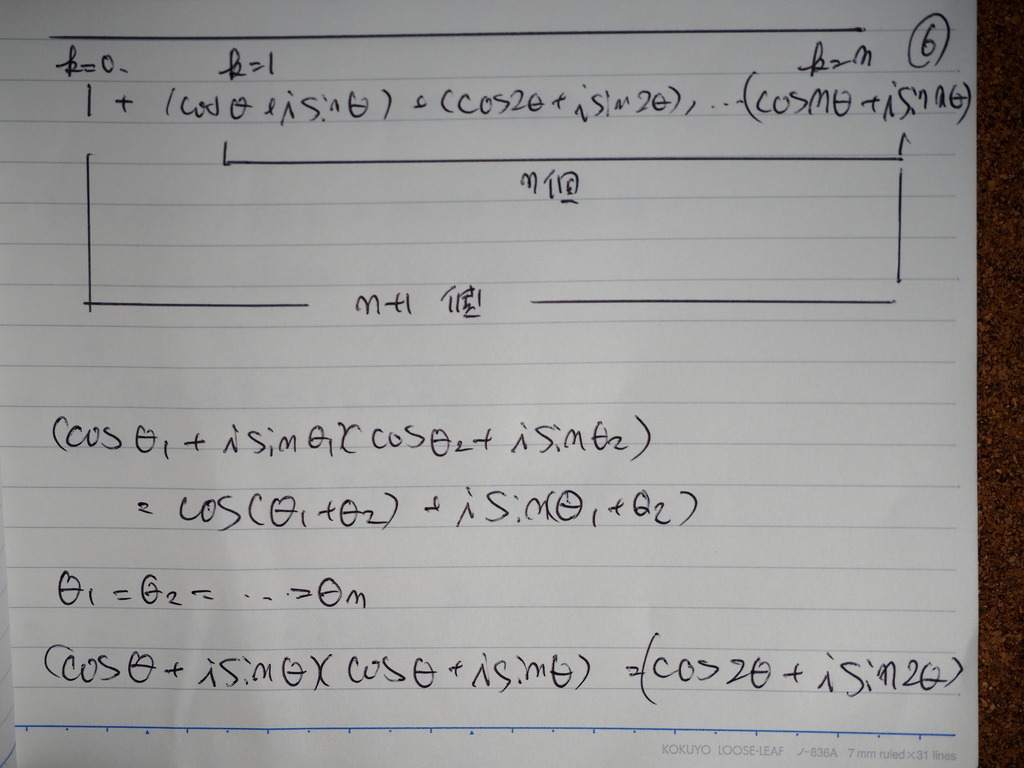 ⑥
k=0. k=1 k=n
1 + (cosθ + i sinθ) + (cos2θ + i sin2θ), ... (cos nθ + i sin nθ)
n個
n+1 個
(cosθ₁ + i sinθ₁)(cosθ₂ + i sinθ₂)
= cos(θ₁+θ₂) + i sin(θ₁+θ₂)
θ₁ = θ₂ = ... = θn
(cosθ + i sinθ)(cosθ + i sinθ) = (cos2θ + i sin2θ)
KOKUYO LOOSE-LEAF ノ-836A 7 mm ruled×31 lines